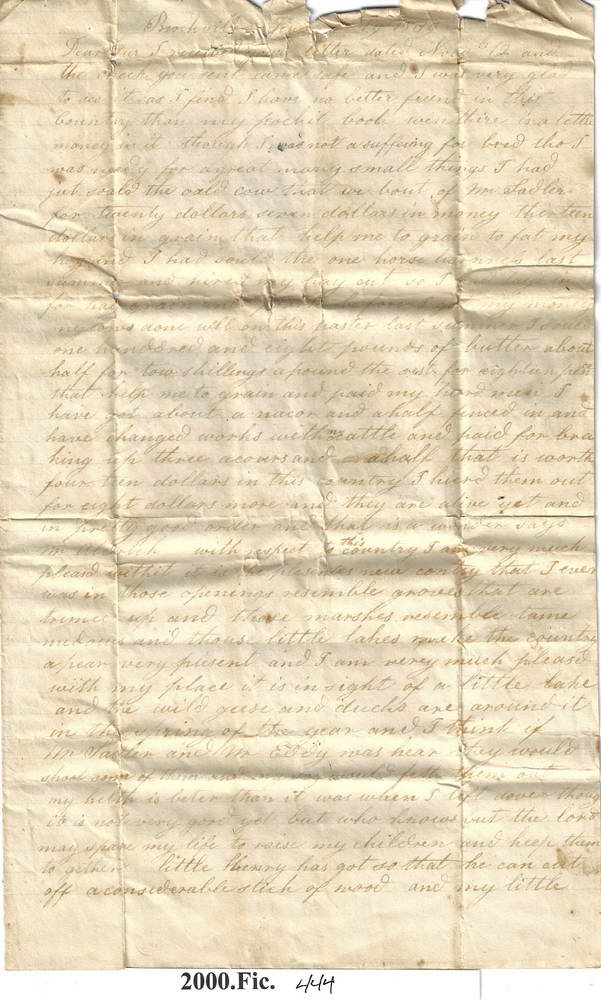 Dear Sir I received your letter dated Novm 12 and
the check you sent came safe and I was very glad
to see it as I find I have no better friend in this
Country than my pocket book wen thire is a little
money in it though I was not a suffering for bred tho I
was needy for a great many small things I had
jut sould the oald cow that we bout of Mr Sadler
for twenty dollars seven dollars in money thorteen
dollars in grain that help me to grain to fat my
hogs and I had sould the one horse last
summer and hired my hay cut so I
for hay my money
my cows done well on this paster last summer I sould
one hundered and eight pounds of butter about
half for tow shillings a pound the rest for eighteen pess
that help me to grain and paid my hord men I
have got about a nacor and a half fenced in and
have changed works with my cattle and paid for bra
king up three acours and a half that is worth
four teen dollars in this country I hierd them out
for eight dollars more and they are alive yet and
in pretty good order and that is a wonder says
Mr with respect to this country I am very much
pleasd with it it is the plesents new contry that I ever
was in those openings resemble groves that are
trimed up and those marshes resemble tame
medows and thouse little lakes make the country
apear very plesent and I am verey much pleased
with my place it is in sight of a little lake
and the wild geese and ducks are around it
in the spring of the year and I think if
Mr Sadler and Mr Eddy was hear they would
shoot some of them them out
my hilth is beter than it was when I left dover though
it is not very gord yet but who knows but the lord
may spare my life to raise my children and keep them
to gether little Henry has got so that he can cut
off a considerable stick of wood and my little
2000.Fic. 444